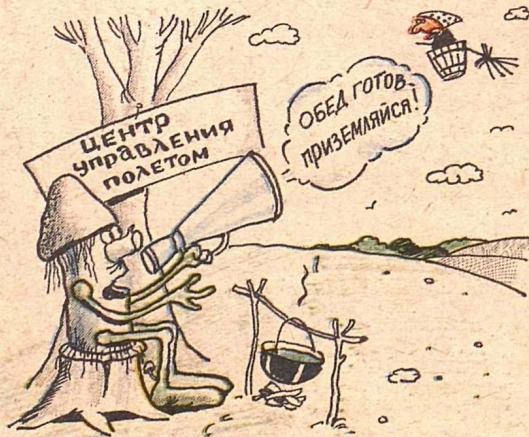 ЦЕНТР
управлЕния
полЕтом
ОБЕД ГОТОВ-
ПРИЗЕМЛЯЙСЯ!